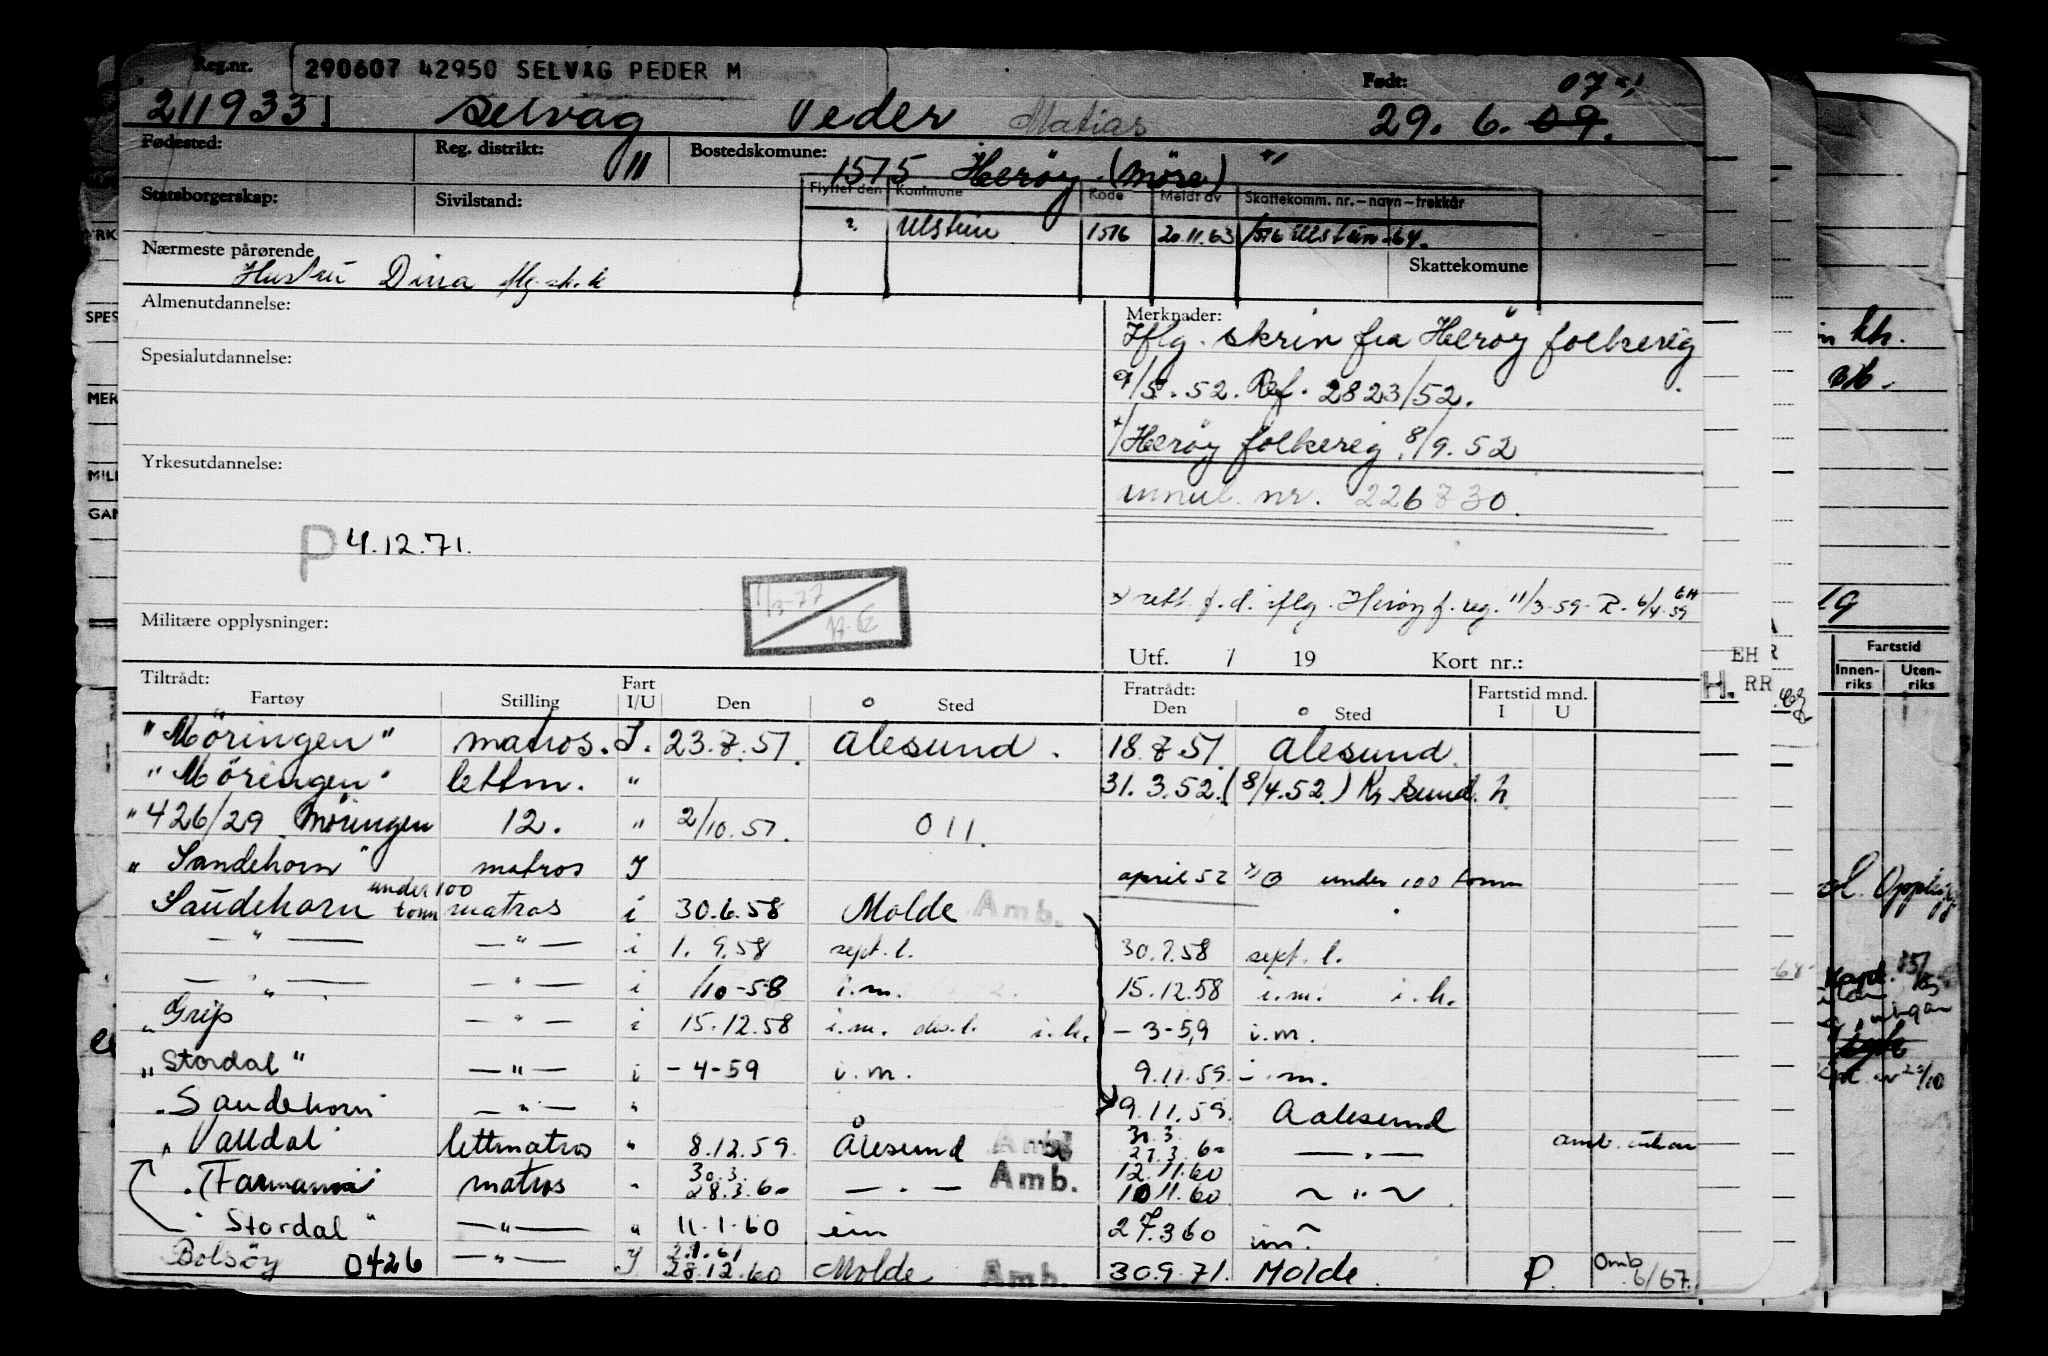 Reg.nr. 290607 42950 SELVAG PEDER M
Født: 07
211933 Selvag Peder Matias 29. 6. 09.
Fødested: Reg. distrikt: 11 Bostedskomune: 1515 Herøy (Møre)
Statsborgerskap: Sivilstand:
Flyttet den Kommune Kode Meldt av Skattekomm. nr. - navn - trekkår
? Ulstein 1516 20.11.63 1516 Ulstein 64.
Nærmeste pårørende Hustru Dina
Skattekomune
Almenutdannelse:
Merknader:
Iflg. skriv fra Herøy folkereg
9/5. 52. Ref. 2823/52.
Spesialutdannelse:
x/ Herøy folkereg. 8/9. 52
Yrkesutdannelse:
annul. nr. 226830.
P 4.12.71.
1/3-77
x rett f.d. iflg. Herøy f. reg. 11/3-59- R. 6/4-59
Militære opplysninger:
Utf. / 19 Kort nr.:
EH R
H. RR
Tiltrådt: Fratrådt:
Fartøy Stilling Fart I/U Den Sted Den Sted Fartstid mnd. I U
"Möringen" matros. I. 23.7.51. Ålesund. 18.8.51. Ålesund.
"Möringen" lettm. " 31.3.52. (8/4.52.) Kr. Sund. h
"426/29 Möringen 12. " 2/10.51. 011.
"Sandehorn" matros I april 52 under 100 tonn
Saudehorn under 100 tonn matros i 30.6.58 Molde Amb.
— " — — " — i 1. 9.58 sept. l. 30.9.58 sept. l.
— " — — " — i 1/10-58 i.m. 15.12.58 i.m. i.h.
"Grip — " — i 15.12.58 i.m. des.l. i.h. - 3-59 i.m.
"Stordal" — " — i - 4-59 i.m. 9.11.59. i.m.
"Saudehorn — " — " 9.11.59. Aalesund
"Valldal" lettmatros " 8.12.59. Ålesund Amb. 30.3. 27.3.60 — " —
"Farmannn" matros " 30.3. 28.3.60 — " — Amb. 12.11.60 10.11.60 ~ " ~
"Stordal" — " — " 11.1.60 im 27.3.60 im.
Bolsöy 0426 — " — I 2.1.61 28.12.60 Molde Amb. 30.9.71. Molde. P. Omb 6/67.
SPES
MER
MILI
GAN
19
Fartstid
Innen-riks Uten-riks